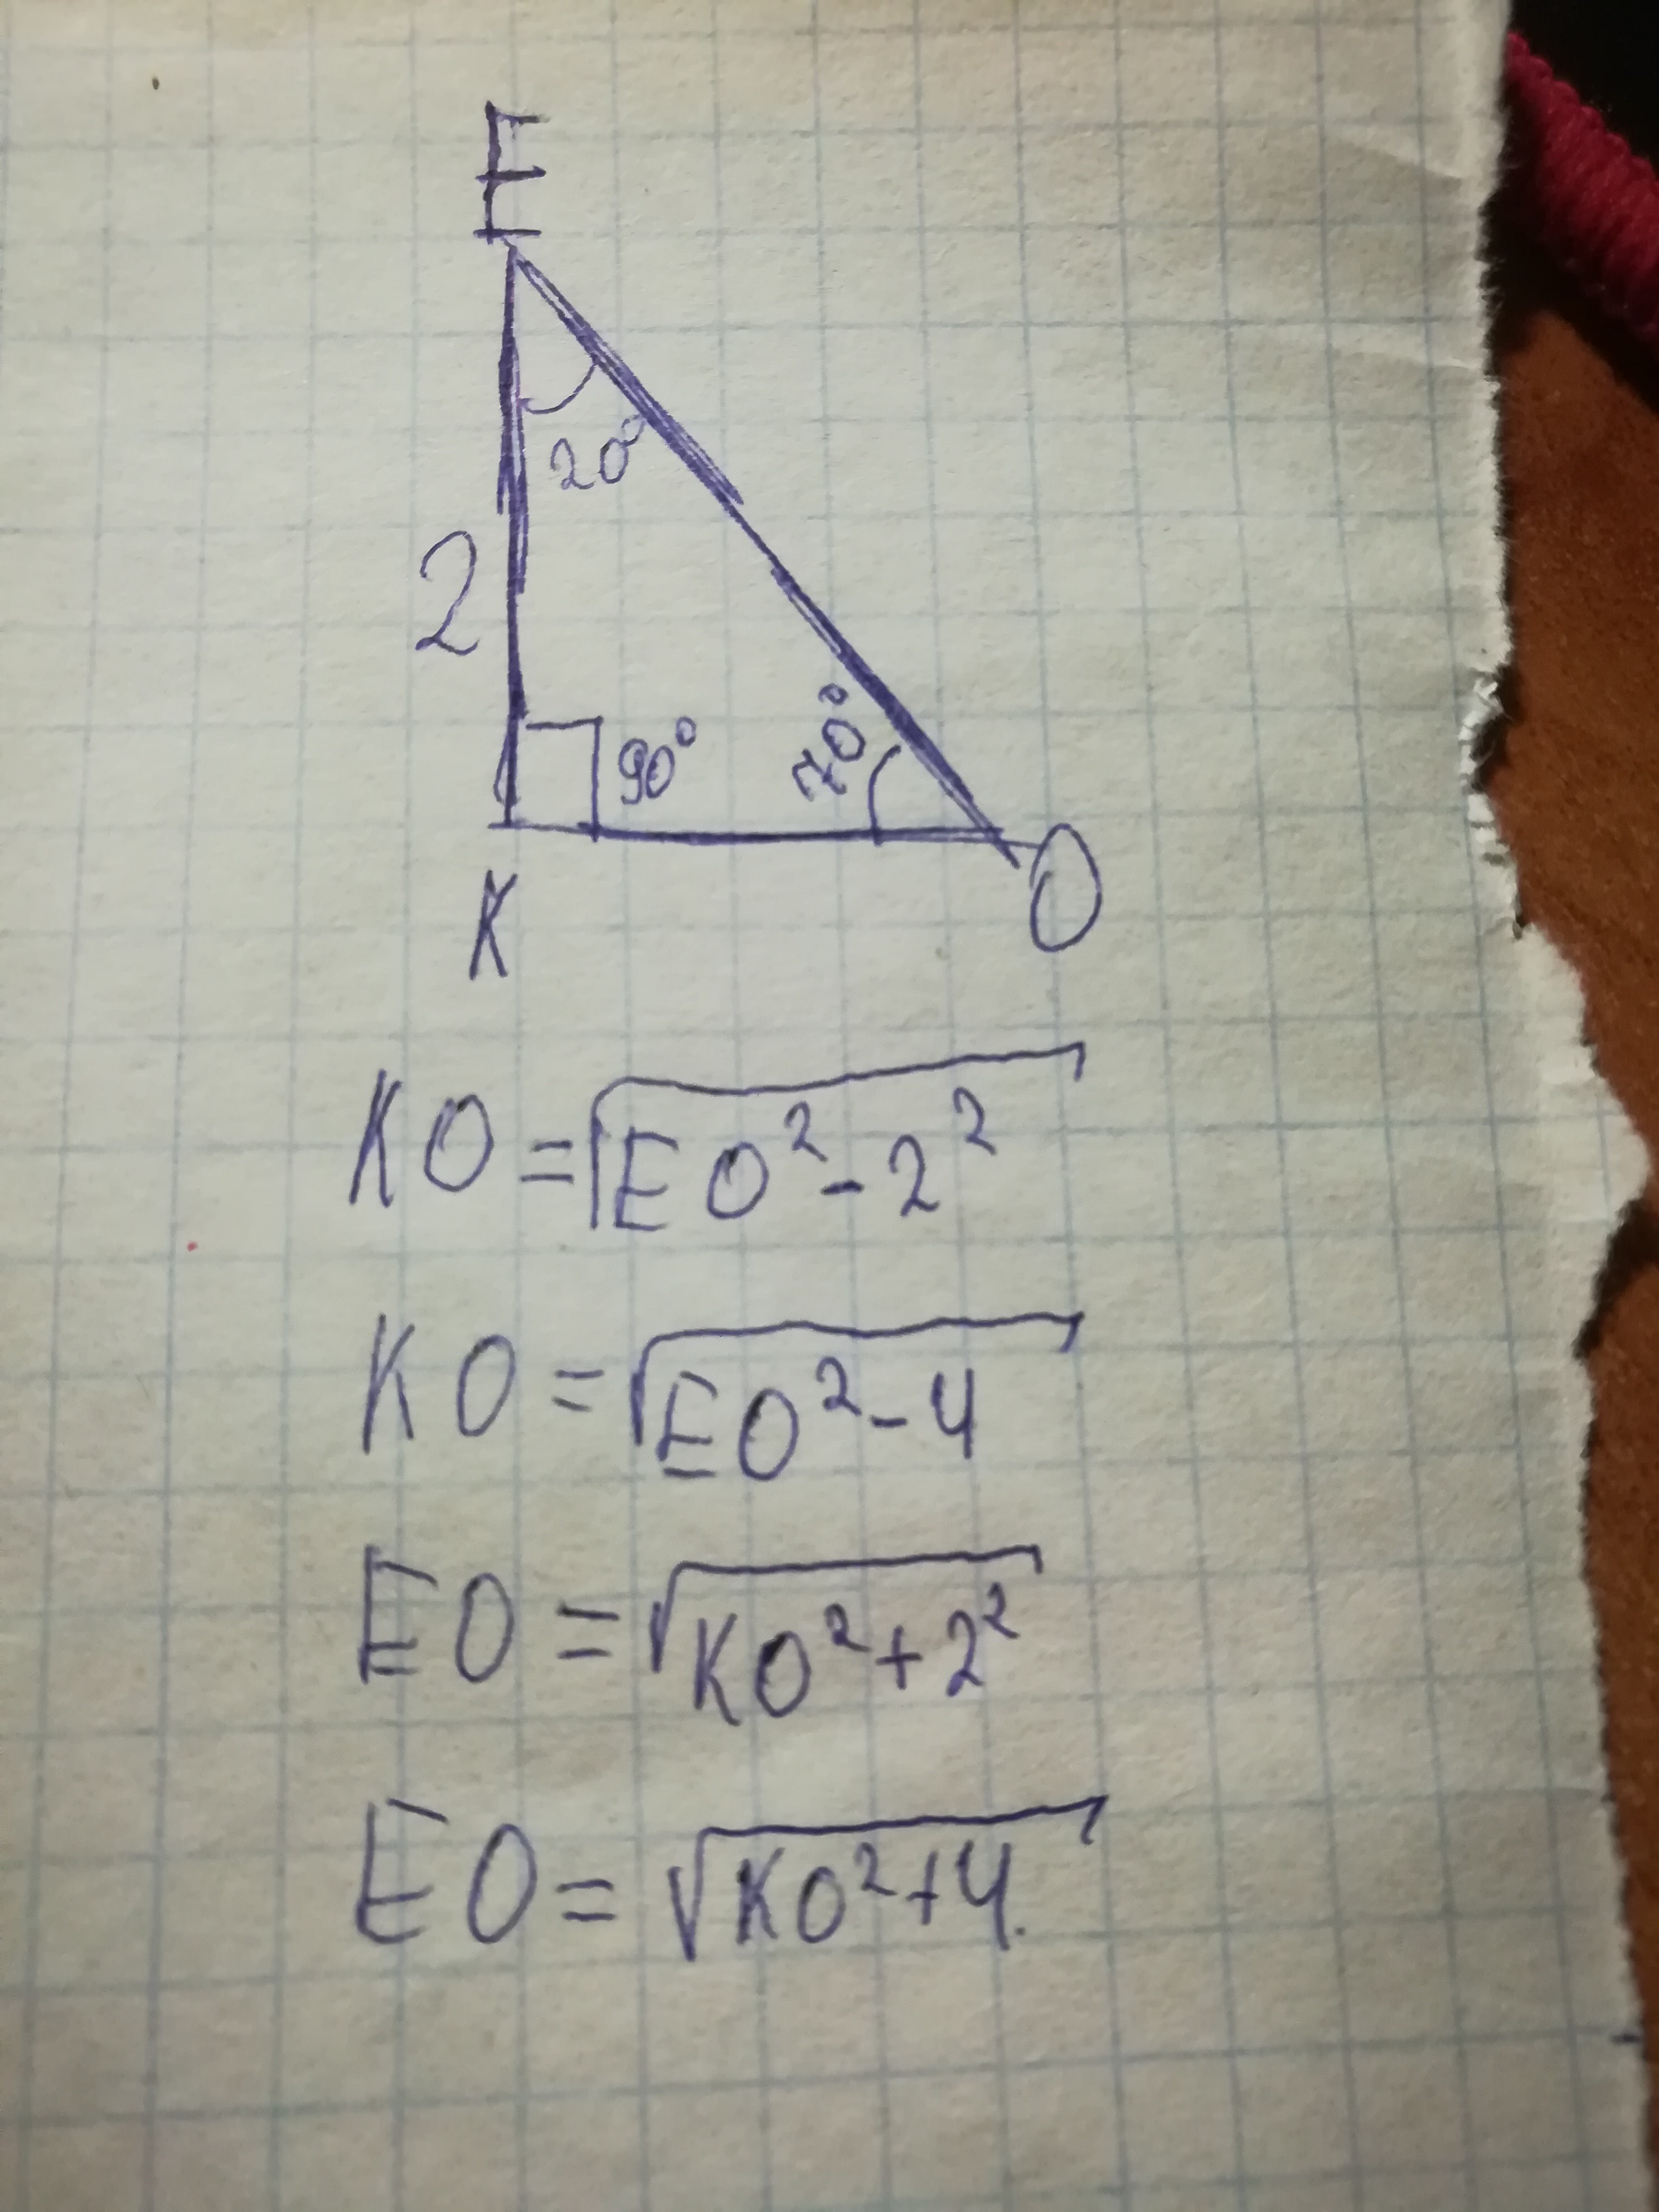 E
20°
2
90° 70°
K O
KO = √EO² - 2²
KO = √EO² - 4
EO = √KO² + 2²
EO = √KO² + 4.